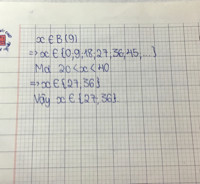 x ∈ B(9)
=> x ∈ {0,9,18,27,36,45,...}
Mà 20 < x < 40
=> x ∈ {27,36}
Vậy x ∈ {27,36}